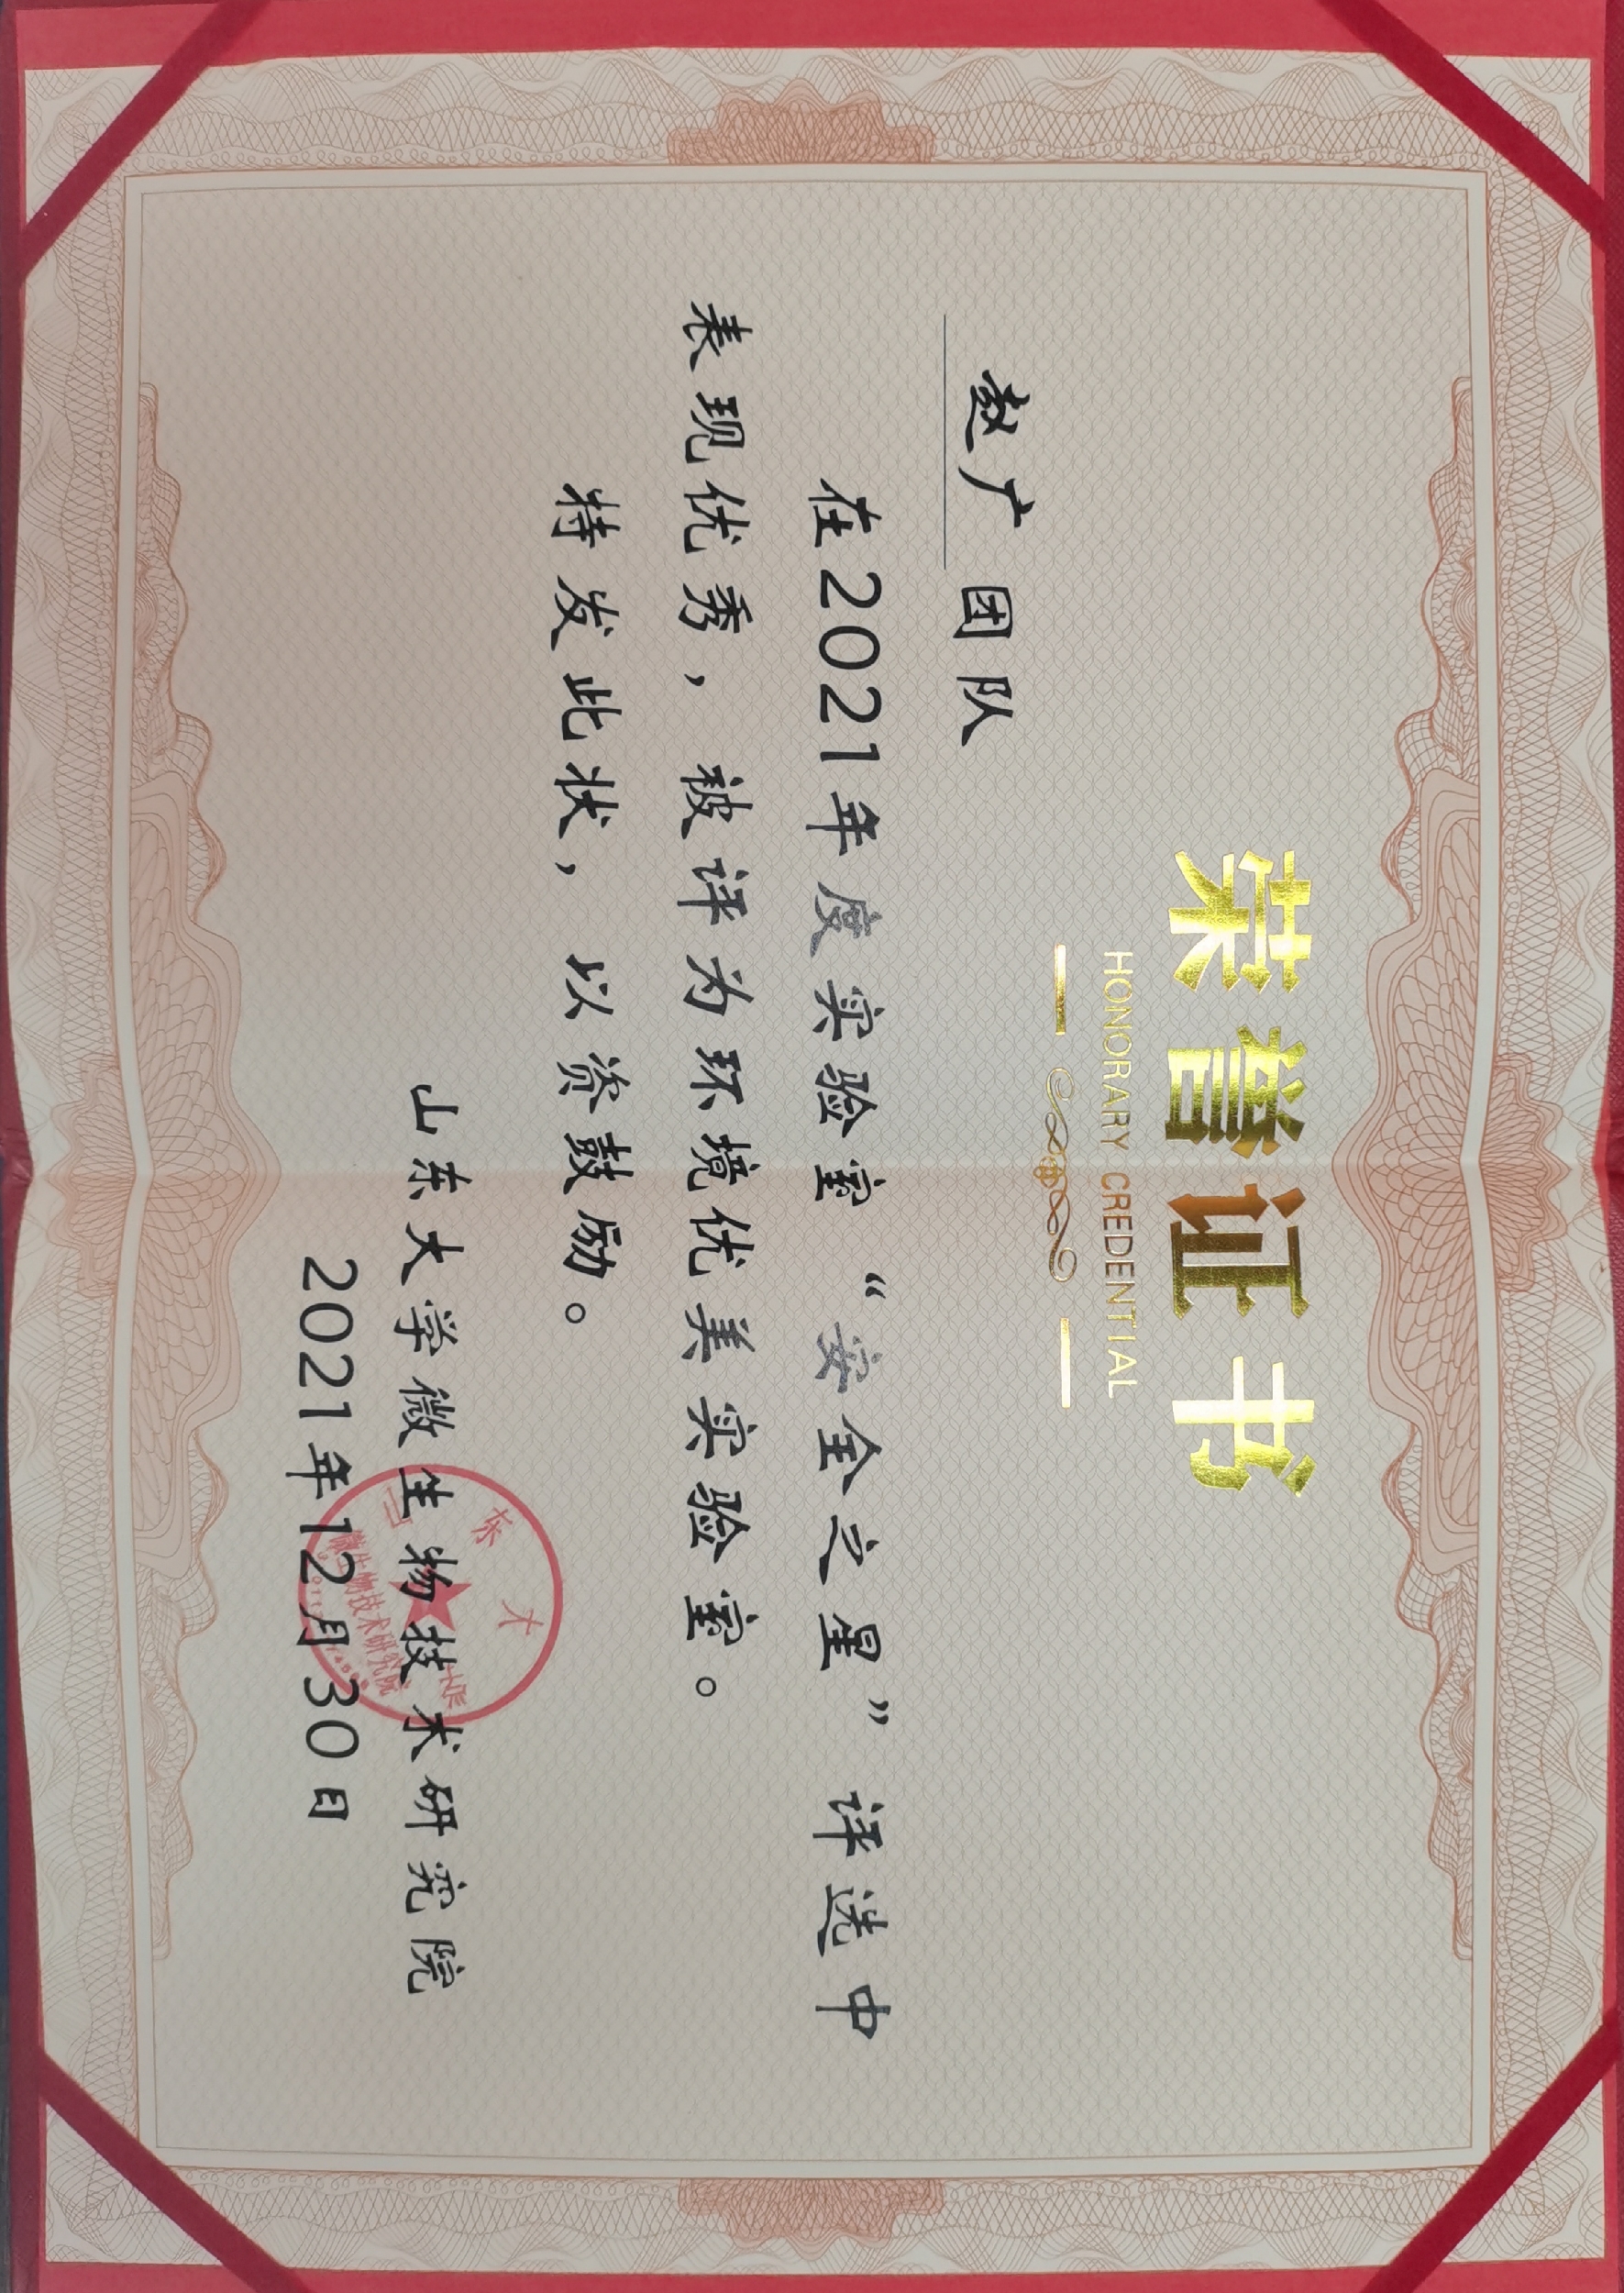 荣誉证书
HONORARY CREDENTIAL
赵广 团队
在2021年度实验室“安全之星”评选中
表现优秀，被评为环境优美实验室。
特发此状，以资鼓励。
山东大学微生物技术研究院
2021年12月30日
东 大
微生物技术研究院